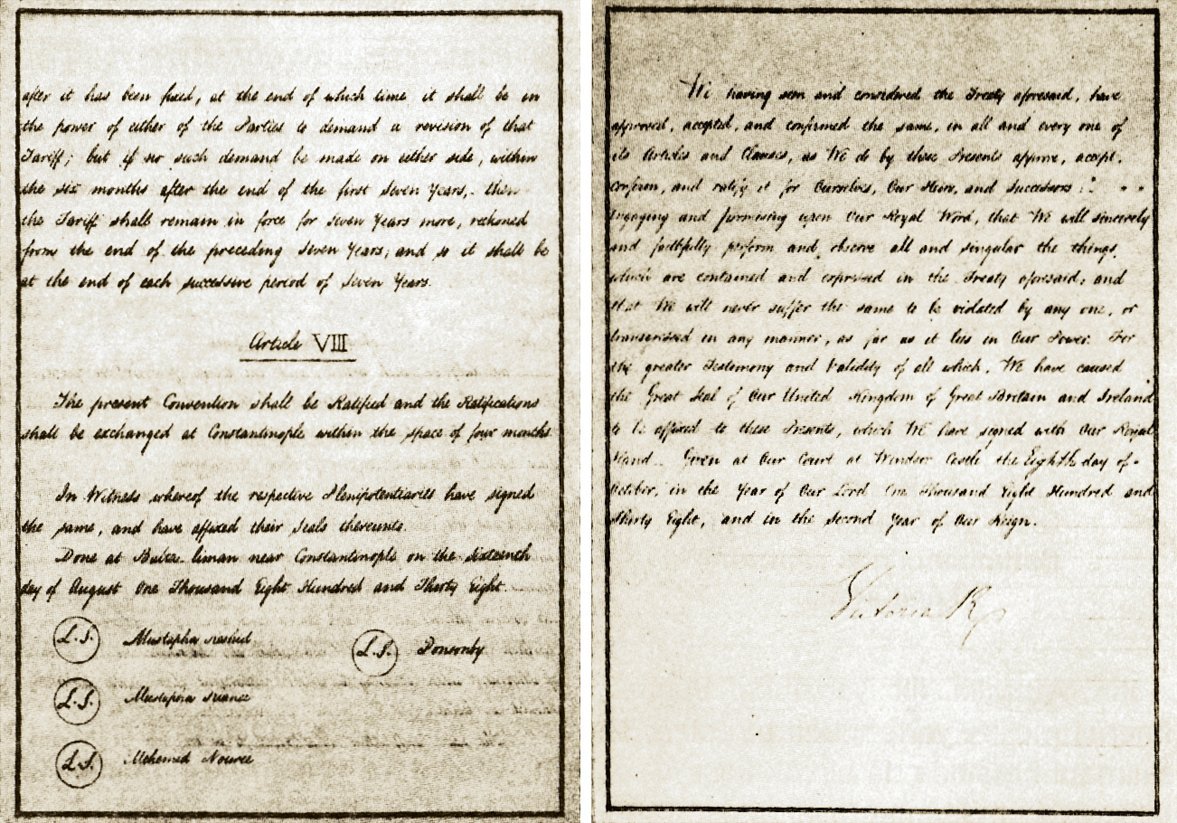 after it has been fixed, at the end of which time it shall be in
the power of either of the Parties to demand a revision of that
Tariff; but if no such demand be made on either side, within
the six months after the end of the first Seven Years, then
the Tariff shall remain in force for Seven Years more, reckoned
from the end of the preceding Seven Years; and so it shall be
at the end of each successive period of Seven Years.
Article VIII
The present Convention shall be Ratified and the Ratifications
shall be exchanged at Constantinople within the space of four months
In Witness whereof the respective Plenipotentiaries have signed
the same, and have affixed their Seals thereunto.
Done at Balta liman near Constantinople on the sixteenth
day of August One Thousand Eight Hundred and Thirty Eight.
L.S. Mustapha Reshid
L.S. Ponsonby
L.S. Mustapha
L.S. Mehemed Nouree
We having seen and considered the Treaty aforesaid, have
approved, accepted, and confirmed the same, in all and every one of
its Articles and Clauses, as We do by these Presents approve, accept,
confirm, and ratify it for Ourselves, Our Heirs, and Successors:
Engaging and promising upon Our Royal Word, that We will sincerely
and faithfully perform and observe all and singular the things
which are contained and expressed in the Treaty aforesaid, and
that We will never suffer the same to be violated by any one, or
transgressed in any manner, as far as it lies in Our Power. For
the greater Testimony and Validity of all which, We have caused
the Great Seal of Our United Kingdom of Great Britain and Ireland
to be affixed to these Presents, which We have signed with Our Royal
Hand. Given at Our Court at Windsor Castle the Eighth day of
October, in the Year of Our Lord One Thousand Eight Hundred and
Thirty Eight, and in the Second Year of Our Reign.
Victoria R